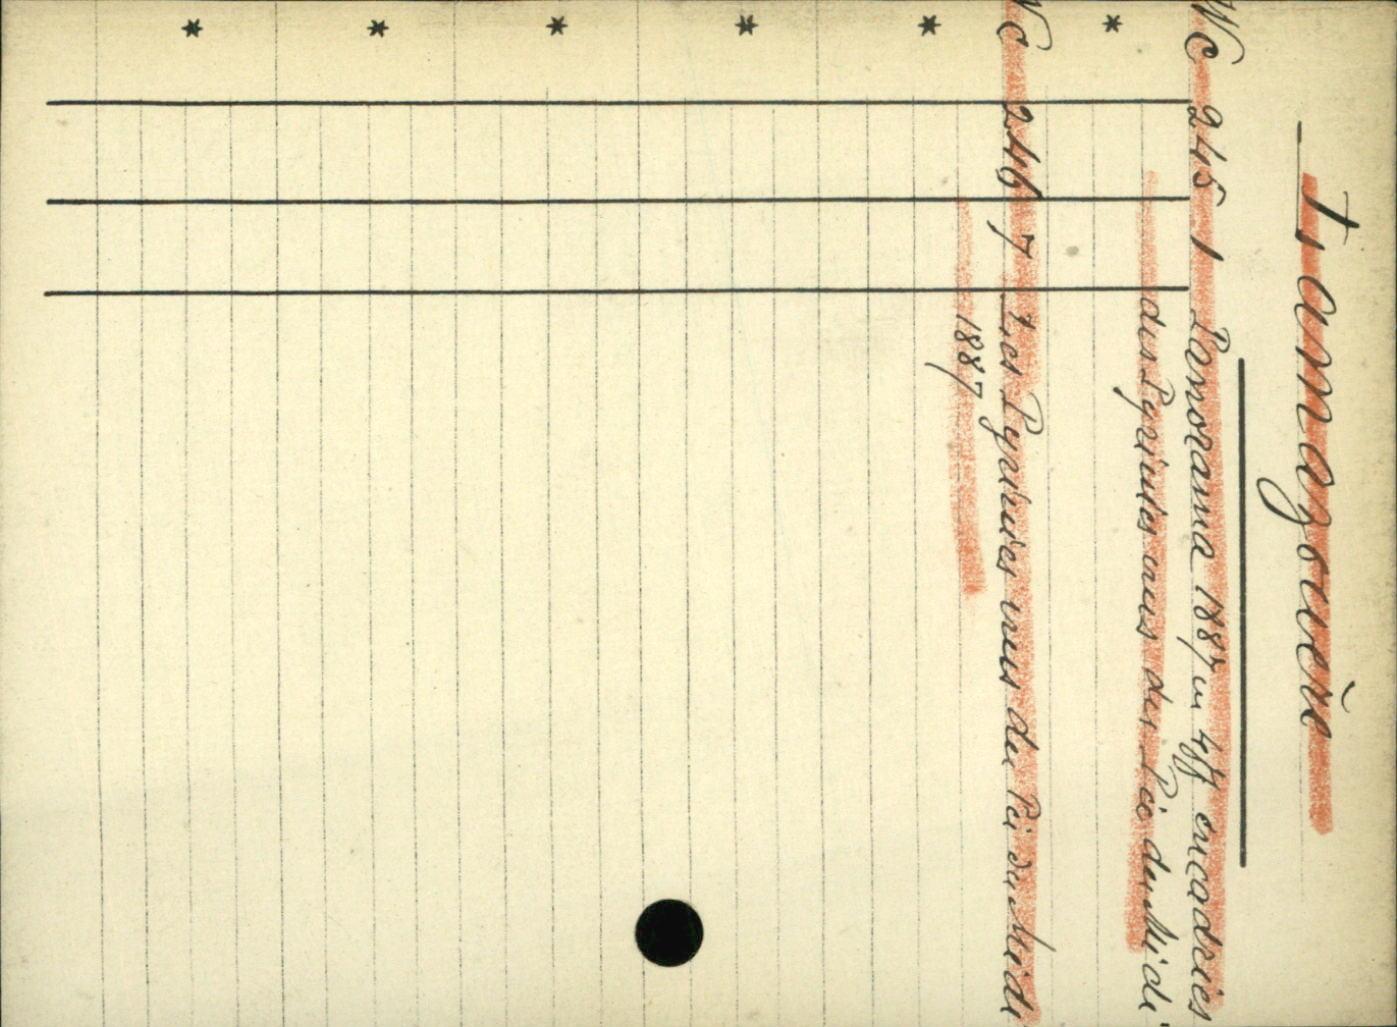 Lamazouère
Wc 245 1 Panorama 1887 en 4ff encadrées
des Pyrénées vues du Pic du Midi
*
Wc 246 7 Les Pyrénées vues du Pic du Midi
1887
*
*
*
*
*